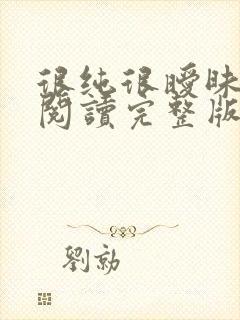 很純很曖昧
閱讀完整版
劉勃